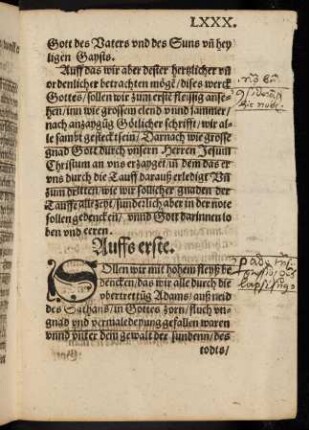 LXXX.
Gott des Vaters vnd des Suns vñ hey
ligen Gaysts.
Auff das wir aber dester hertzlicher vñ
ordenlicher betrachten mögē/dises werck
Gottes/sollen wir zum erste fleissig anse-
hen/inn wie grossem elend vnnd jammer/
nach anzaygūg Götlicher schrifft/wir al-
le sambt gesteckt sein/Darnach wie grosse
gnad Gott durch vnsern Herren Jesum
Christum an vns erzayget/in dem das er
vns durch die Tauff darauß erledigt Vñ
zum dritten/wie wir sollicher gnaden der
Tauffe allezeyt/sunderlich aber in der note
sollen gedencken/vnnd Gott darinnen lo
ben vnd eeren.
Auffs erste.
SOllen wir mit hohem fleyß be
dencken/das wir alle durch die
vbertrettūg Adams/auß neid
des Sathans/in Gottes zorn/fluch vn-
gnad vnd vermaledeyung gefallen waren
vnnd vnter dem gewalt der sunden/des
todts/